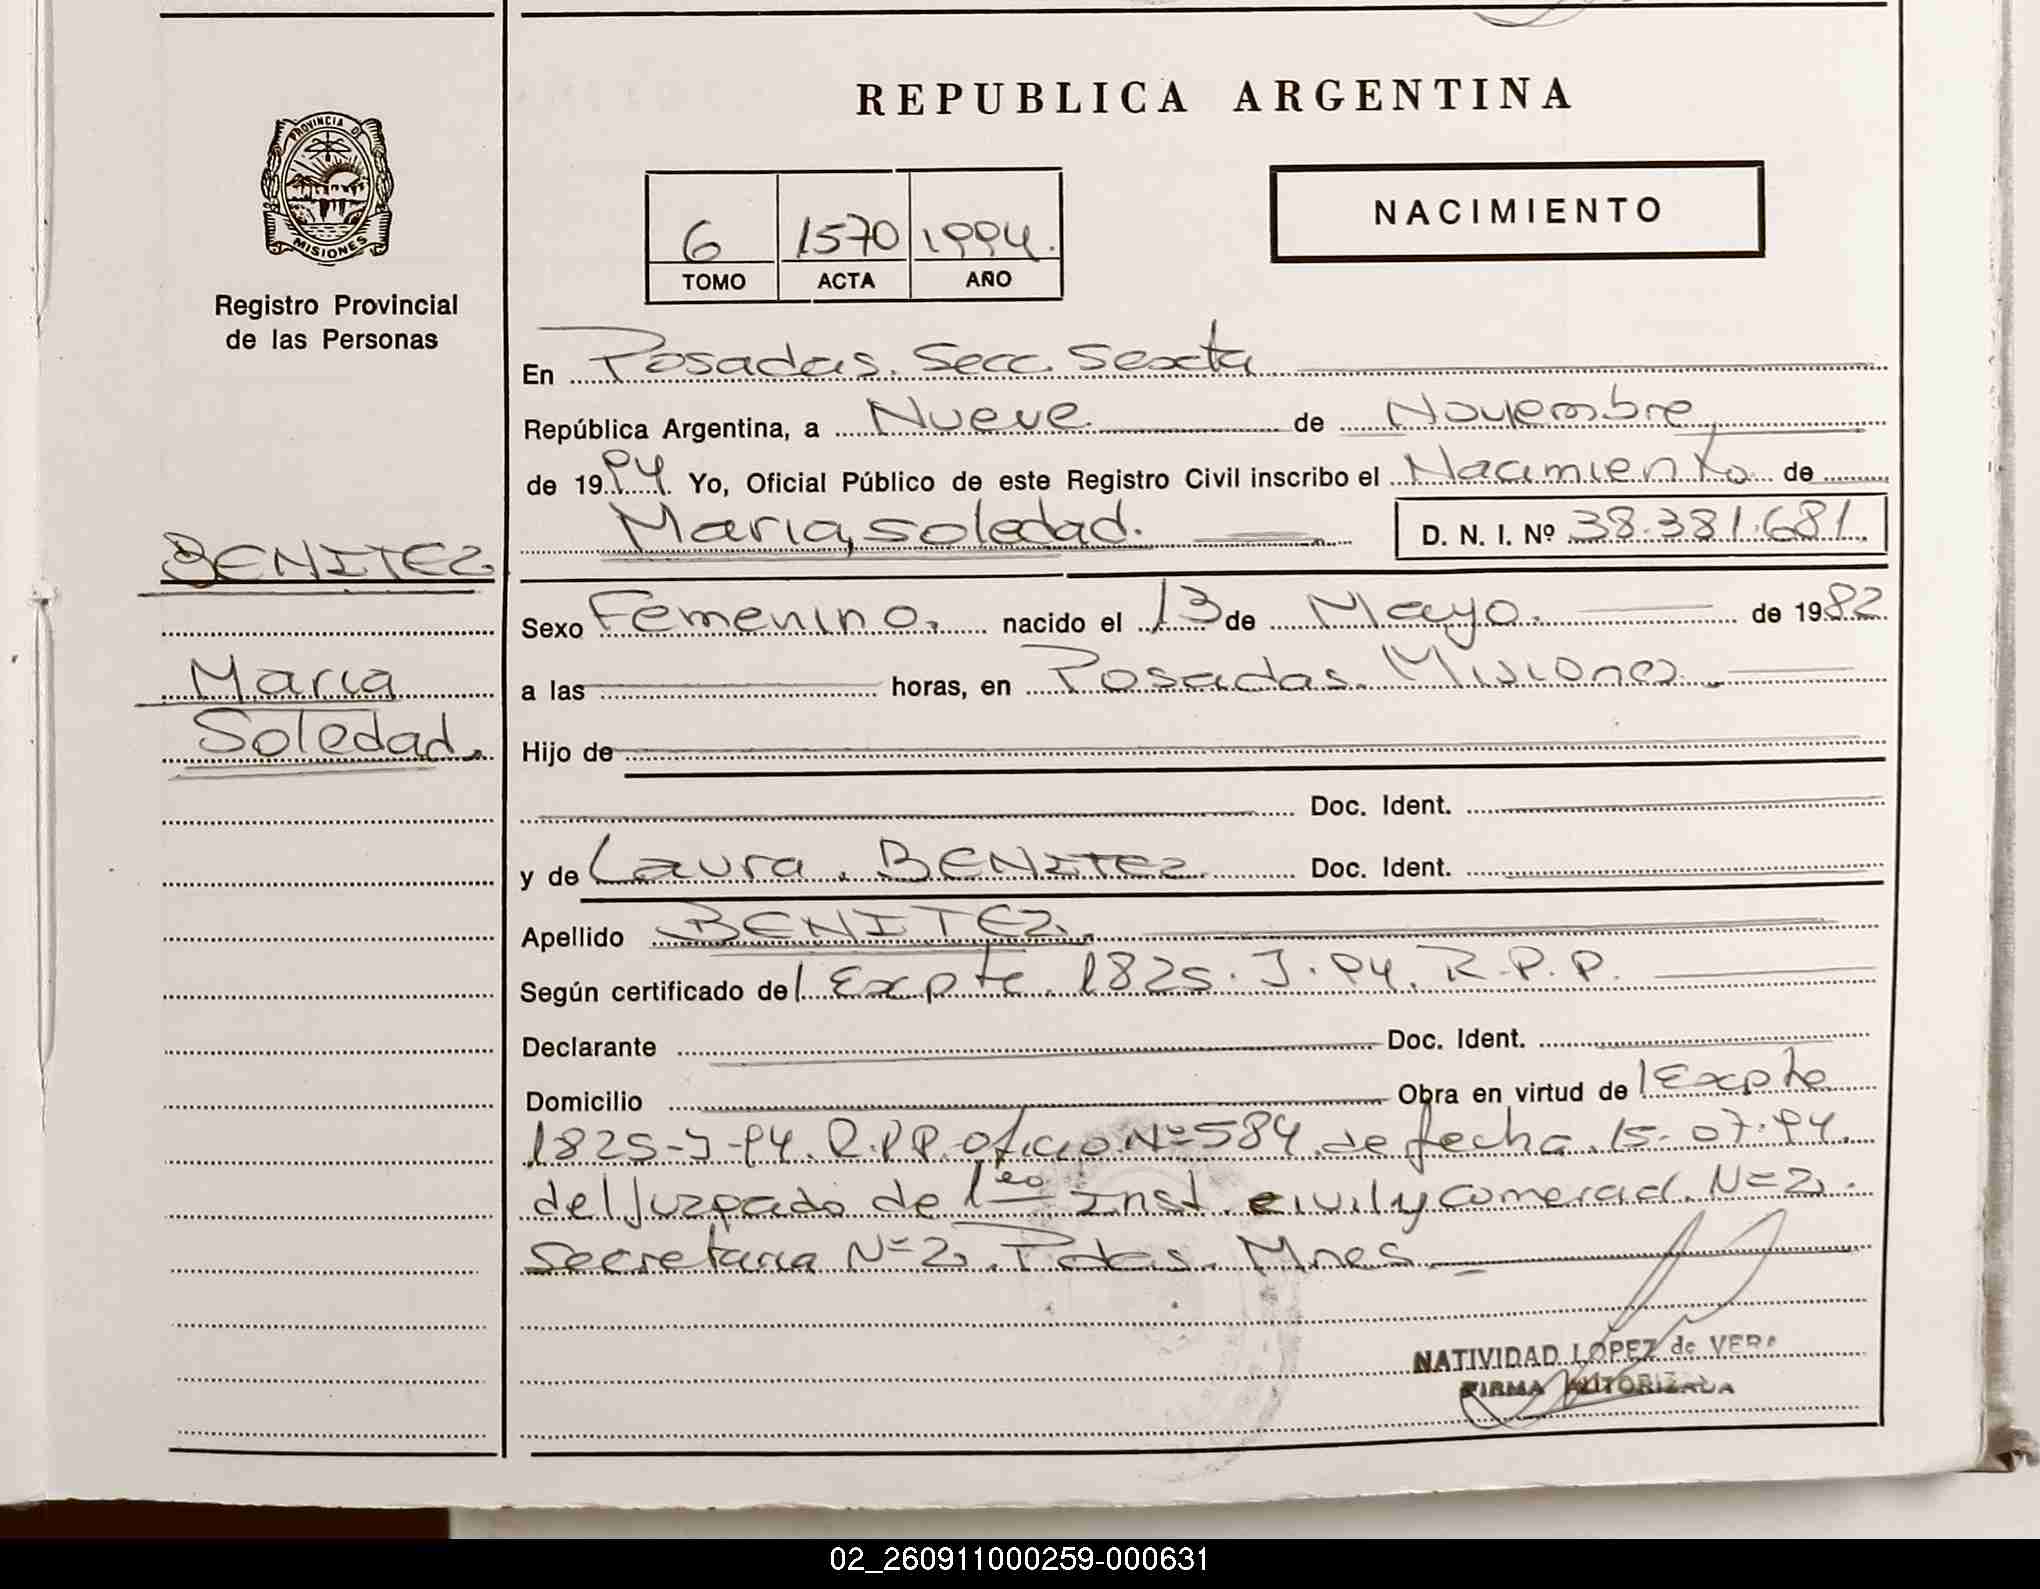 REPUBLICA ARGENTINA
PROVINCIA DE
MISIONES
Registro Provincial
de las Personas
NACIMIENTO
6 1570 1994.
TOMO ACTA AÑO
En Posadas. Secc. Sexta
República Argentina, a Nueve de Noviembre
de 1994 Yo, Oficial Público de este Registro Civil inscribo el Nacimiento de
Maria, Soledad. D. N. I. Nº 38.381.681.
BENITEZ
Maria
Soledad.
Sexo Femenino. nacido el 13 de Mayo. de 1982
a las horas, en Posadas. Misiones
Hijo de
y de Doc. Ident.
y de Laura. BENITEZ Doc. Ident.
Apellido BENITEZ.
Según certificado del Expte. 1825. J. 94. R.P.P.
Declarante Doc. Ident.
Domicilio Obra en virtud del Expte
1825-J-94. R.P.P. Oficio Nº 584 de fecha 15-07-94.
del Juzgado de 1era Inst. civil y comercial. Nº 2.
Secretaria Nº 2. Pdas. Mnes
NATIVIDAD LOPEZ de VERA
FIRMA AUTORIZADA
02_260911000259-000631